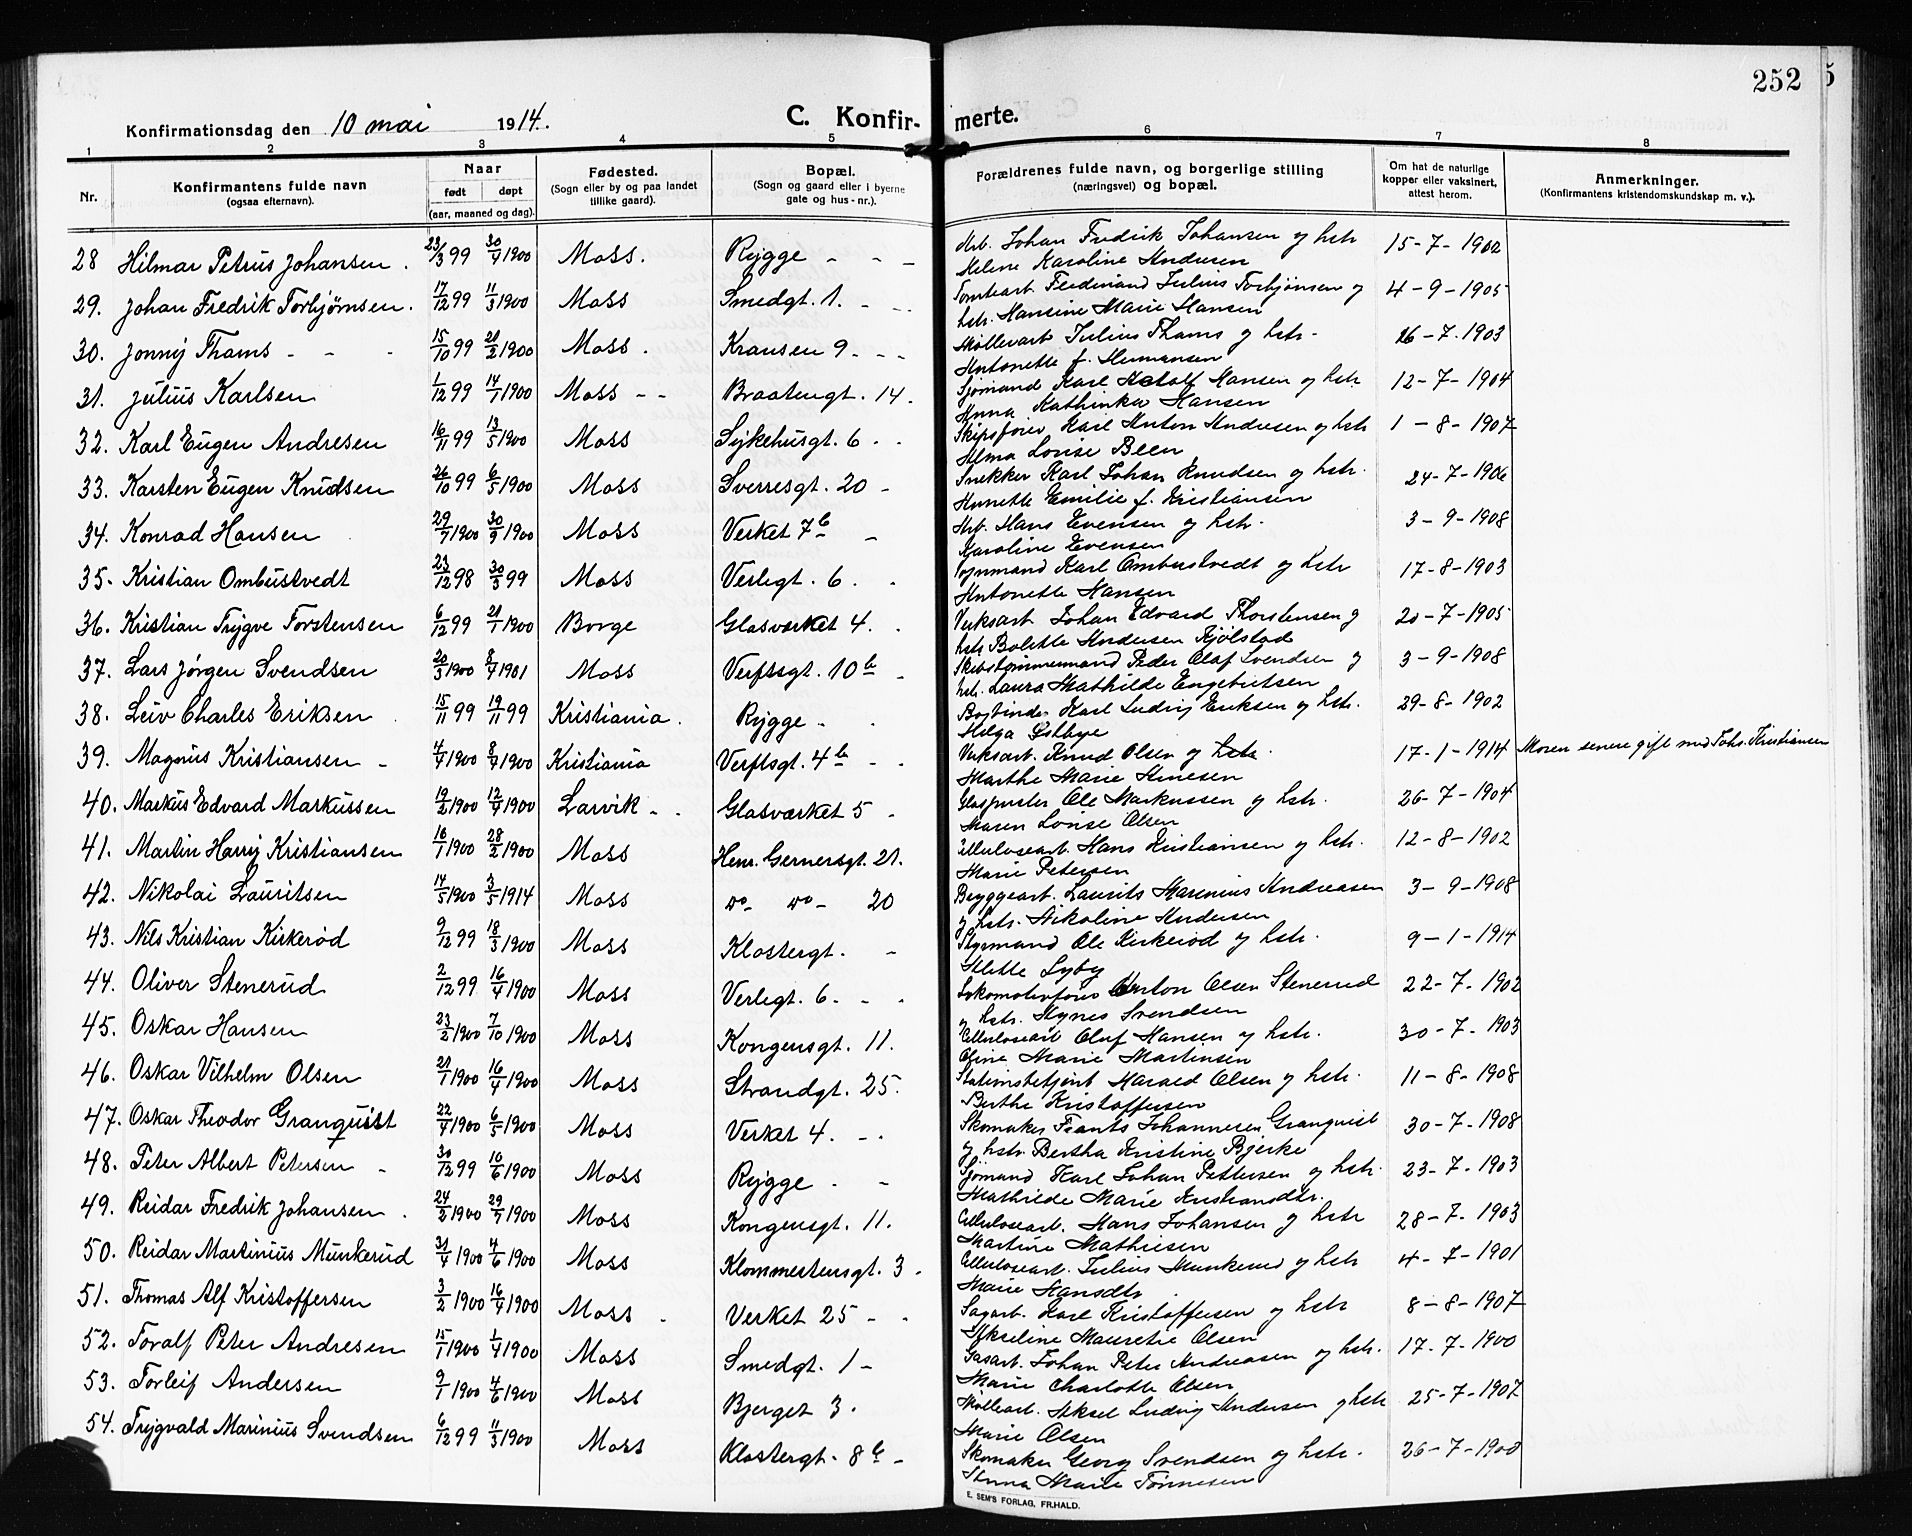 252
Konfirmationsdag den 10 mai 1914.
C. Konfir- merte.
1 2 3 4 5 6 7 8
Nr.
Konfirmantens fulde navn
(ogsaa efternavn).
Naar
født døpt
(aar, maaned og dag).
Fødested.
(Sogn eller by og paa landet
tillike gaard).
Bopæl.
(Sogn og gaard eller i byerne
gate og hus-nr.).
Forældrenes fulde navn, og borgerlige stilling
(næringsvei) og bopæl.
Om hat de naturlige
kopper eller vaksinert,
attest herom.
Anmerkninger.
(Konfirmantens kristendomskundskap m. v.).
28 Hilmar Petrus Johansen. 23/3 99 30/4 1900 Moss. Rygge - - - Arb. Johan Fredrik Johansen og hstr 15-7-1902
Helene Karoline Andresen
29. Johan Fredrik Torbjørnsen. 17/12 99 11/3 1900 Moss Smedgt. 1. - - Tomtearb. Ferdinand Julius Torbjørnsen og 4-9-1905
hstr. Hansine Marie Hansen
30. Jonny Thams - - - 15/10 99 2/2 1900 Moss. Kransen 9 - - - Møllearb Julius Thams og hstr. 26-7-1903
Antonette f. Hermansen
31. Julius Karlsen 1/12 99 14/1 1900 Moss - - Braatengt. 14. Sjømand Karl Adolf Hansen og hstr 12-7-1904
Anna Kathinka Hansen
32. Karl Eugen Andresen 16/11 99 13/5 1900 Moss Sykehusgt. 6 - - Skipsfører Karl Anton Andresen og hstr 1-8-1907
Alma Lovise Been
33. Karsten Eugen Knudsen 26/10 99 6/5 1900 Moss Sverresgt. 20 - Snekker Karl Johan Knudsen og hstr. 24-7-1906
Annette Emilie f. Kristiansen
34. Konrad Hansen 29/7 1900 30/9 1900 Moss Verket 7b - Arb. Hans Evensen og hstr. 3-9-1908
Karoline Evensen
35. Kristian Ombustvedt 23/12 98 30/3 99 Moss Verlegt. 6. - Karl Ombustvedt og hstr 17-8-1903
Antonette Hansen
36. Kristian Trygve Torstensen 6/12 99 21/1 1900 Borge Glasværket 4. - Verksarb. Johan Edvard Thorstensen og 20-7-1905
hstr Bolette Andersen Kjølstad
37. Lars Jørgen Svendsen 20/3 1900 8/4 1901 Moss Verftsgt. 10b - Skibstømmermand Peder Olaf Svendsen og 3-9-1908
hstr. Laura Mathilde Engebretsen
38. Leiv Charles Eriksen 15/11 99 19/11 99 Kristiania. Rygge - - Bogbinder Karl Ludvig Eriksen og hstr. 29-8-1902
Helga Østbye
39. Magnus Kristiansen - 4/4 1900 8/4 1900 Kristiania Verftsgt. 4b - - Verksarb. Knud Olsen og hstr. 17-1-1914 Moren senere gift med Johs. Kristiansen
Marthe Marie
40. Markus Edvard Markussen 19/2 1900 12/4 1900 Larvik - - Glasværket 5 - Glaspuster Ole Markussen og hstr. 26-7-1904
Maren Lovise Olsen
41. Martin Harry Kristiansen 16/1 1900 28/2 1900 Moss Henr. Gernersgt. 21. Cellulosearb. Hans Kristiansen og hstr. 12-8-1902
Marie Petersen
42. Nikolai Lauritsen 14/5 1900 3/5 1914 Moss do- do- 20 Bryggearb. Laurits Marenius Andreasen 3-9-1908
og hstr. Nikoline Andersen
43. Nils Kristian Kirkerød 9/12 99 18/3 1900 Moss Klostergt. - Styrmand Ole Kirkerød og hstr. 9-1-1914
Alette Lyby
44. Oliver Stenerud 2/12 99 16/4 1900 Moss Verlegt. 6. - - Lokomotivfører Anton Olsen Stenerud 22-7-1902
og hstr. Agnes Svendsen
45. Oskar Hansen 23/2 1900 7/10 1900 Moss Kongensgt. 11. Cellulosearb Oluf Hansen og hstr. 30-7-1903
Oline Marie Martinsen
46. Oskar Vilhelm Olsen 21/1 1900 16/4 1900 Moss Strandgt. 25. Stationsbetjent Harald Olsen og hstr. 11-8-1908
Berthe Kristoffersen
47. Oskar Theodor Granquist 22/4 1900 6/5 1900 Moss Verket 4. - - Skomaker Frants Johannesen Granquist 30-7-1908
og hstr. Bertha Kristine Bjerke
48. Peter Albert Petersen - 30/12 99 10/6 1900 Moss Rygge - - Sjømand Karl Johan Pettersen og hstr. 23-7-1903
Mathilde Marie Kristiansdtr.
49. Reidar Fredrik Johansen. 24/2 1900 29/7 1900 Moss Kongensgt. 11. Cellulosearb. Hans Johansen og hstr 28-7-1903
Martine Mathiesen
50. Reidar Martinius Munkerud 4 1900 4/6 1900 Moss Klommestensgt. 3. Cellulosearb. Julius Munkerud og hstr 4-7-1901
Marie Hansdtr.
51. Thomas Alf Kristoffersen 3/2 1900 16/4 1900 Moss. Verket 25 - - Sagarb. Karl Kristoffersen og hstr 8-8-1907
Akseline Mauretie Olsen
52. Toralf Peter Andresen 15/1 1900 1/4 1900 Moss Smedgt. 1 - Gasarb. Johan Peter Andreasen og hstr. 17-7-1900
Marie Charlotte Olsen
53. Torleif Andersen 9/1 1900 4/6 1900 Moss Bjerget 3. Møllearb. Aksel Ludvig Andersen og hstr 25-7-1907
Marie Olsen
54. Trygvald Marinius Svendsen 6/12 99 11/3 1900 Moss Klostergt. 8b - Skomaker Georg Svendsen og hstr. 26-7-1900
Anna Marie Tønnesen
E. SEM'S FORLAG, FR.HALD.